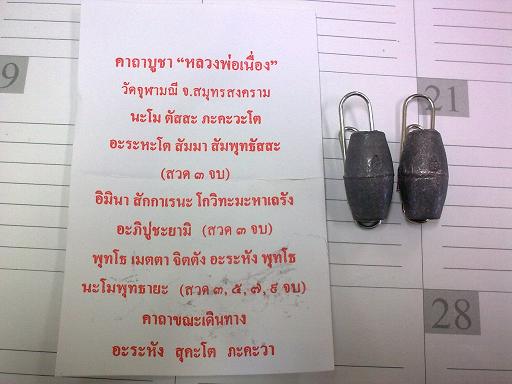 คาถาบูชา “หลวงพ่อเนื่อง”
วัดจุฬามณี จ.สมุทรสงคราม
นะโม ตัสสะ ภะคะวะโต
อะระหะโต สัมมา สัมพุทธัสสะ
(สวด ๓ จบ)
อิมินา สักกาเรนะ โกวิทะมะหาเถรัง
อะภิปูชะยามิ (สวด ๓ จบ)
พุทโธ เมตตา จิตตัง อะระหัง พุทโธ
นะโมพุทธายะ (สวด ๓, ๕, ๗, ๙ จบ)
คาถาขณะเดินทาง
อะระหัง สุคะโต ภะคะวา
9
21
28